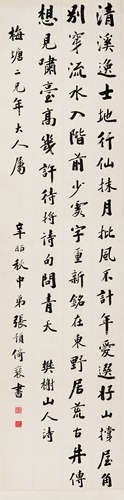 清溪逸士地行仙抹月批風不計年愛選好山撐屋角
別穿流水入階前少霙字重新銘在東野居荒古井傳
想見嘯臺高幾許待將詩句問青天 樊榭山人詩
梅塘二兄年大人屬
辛酉秋中弟張預倚裝書